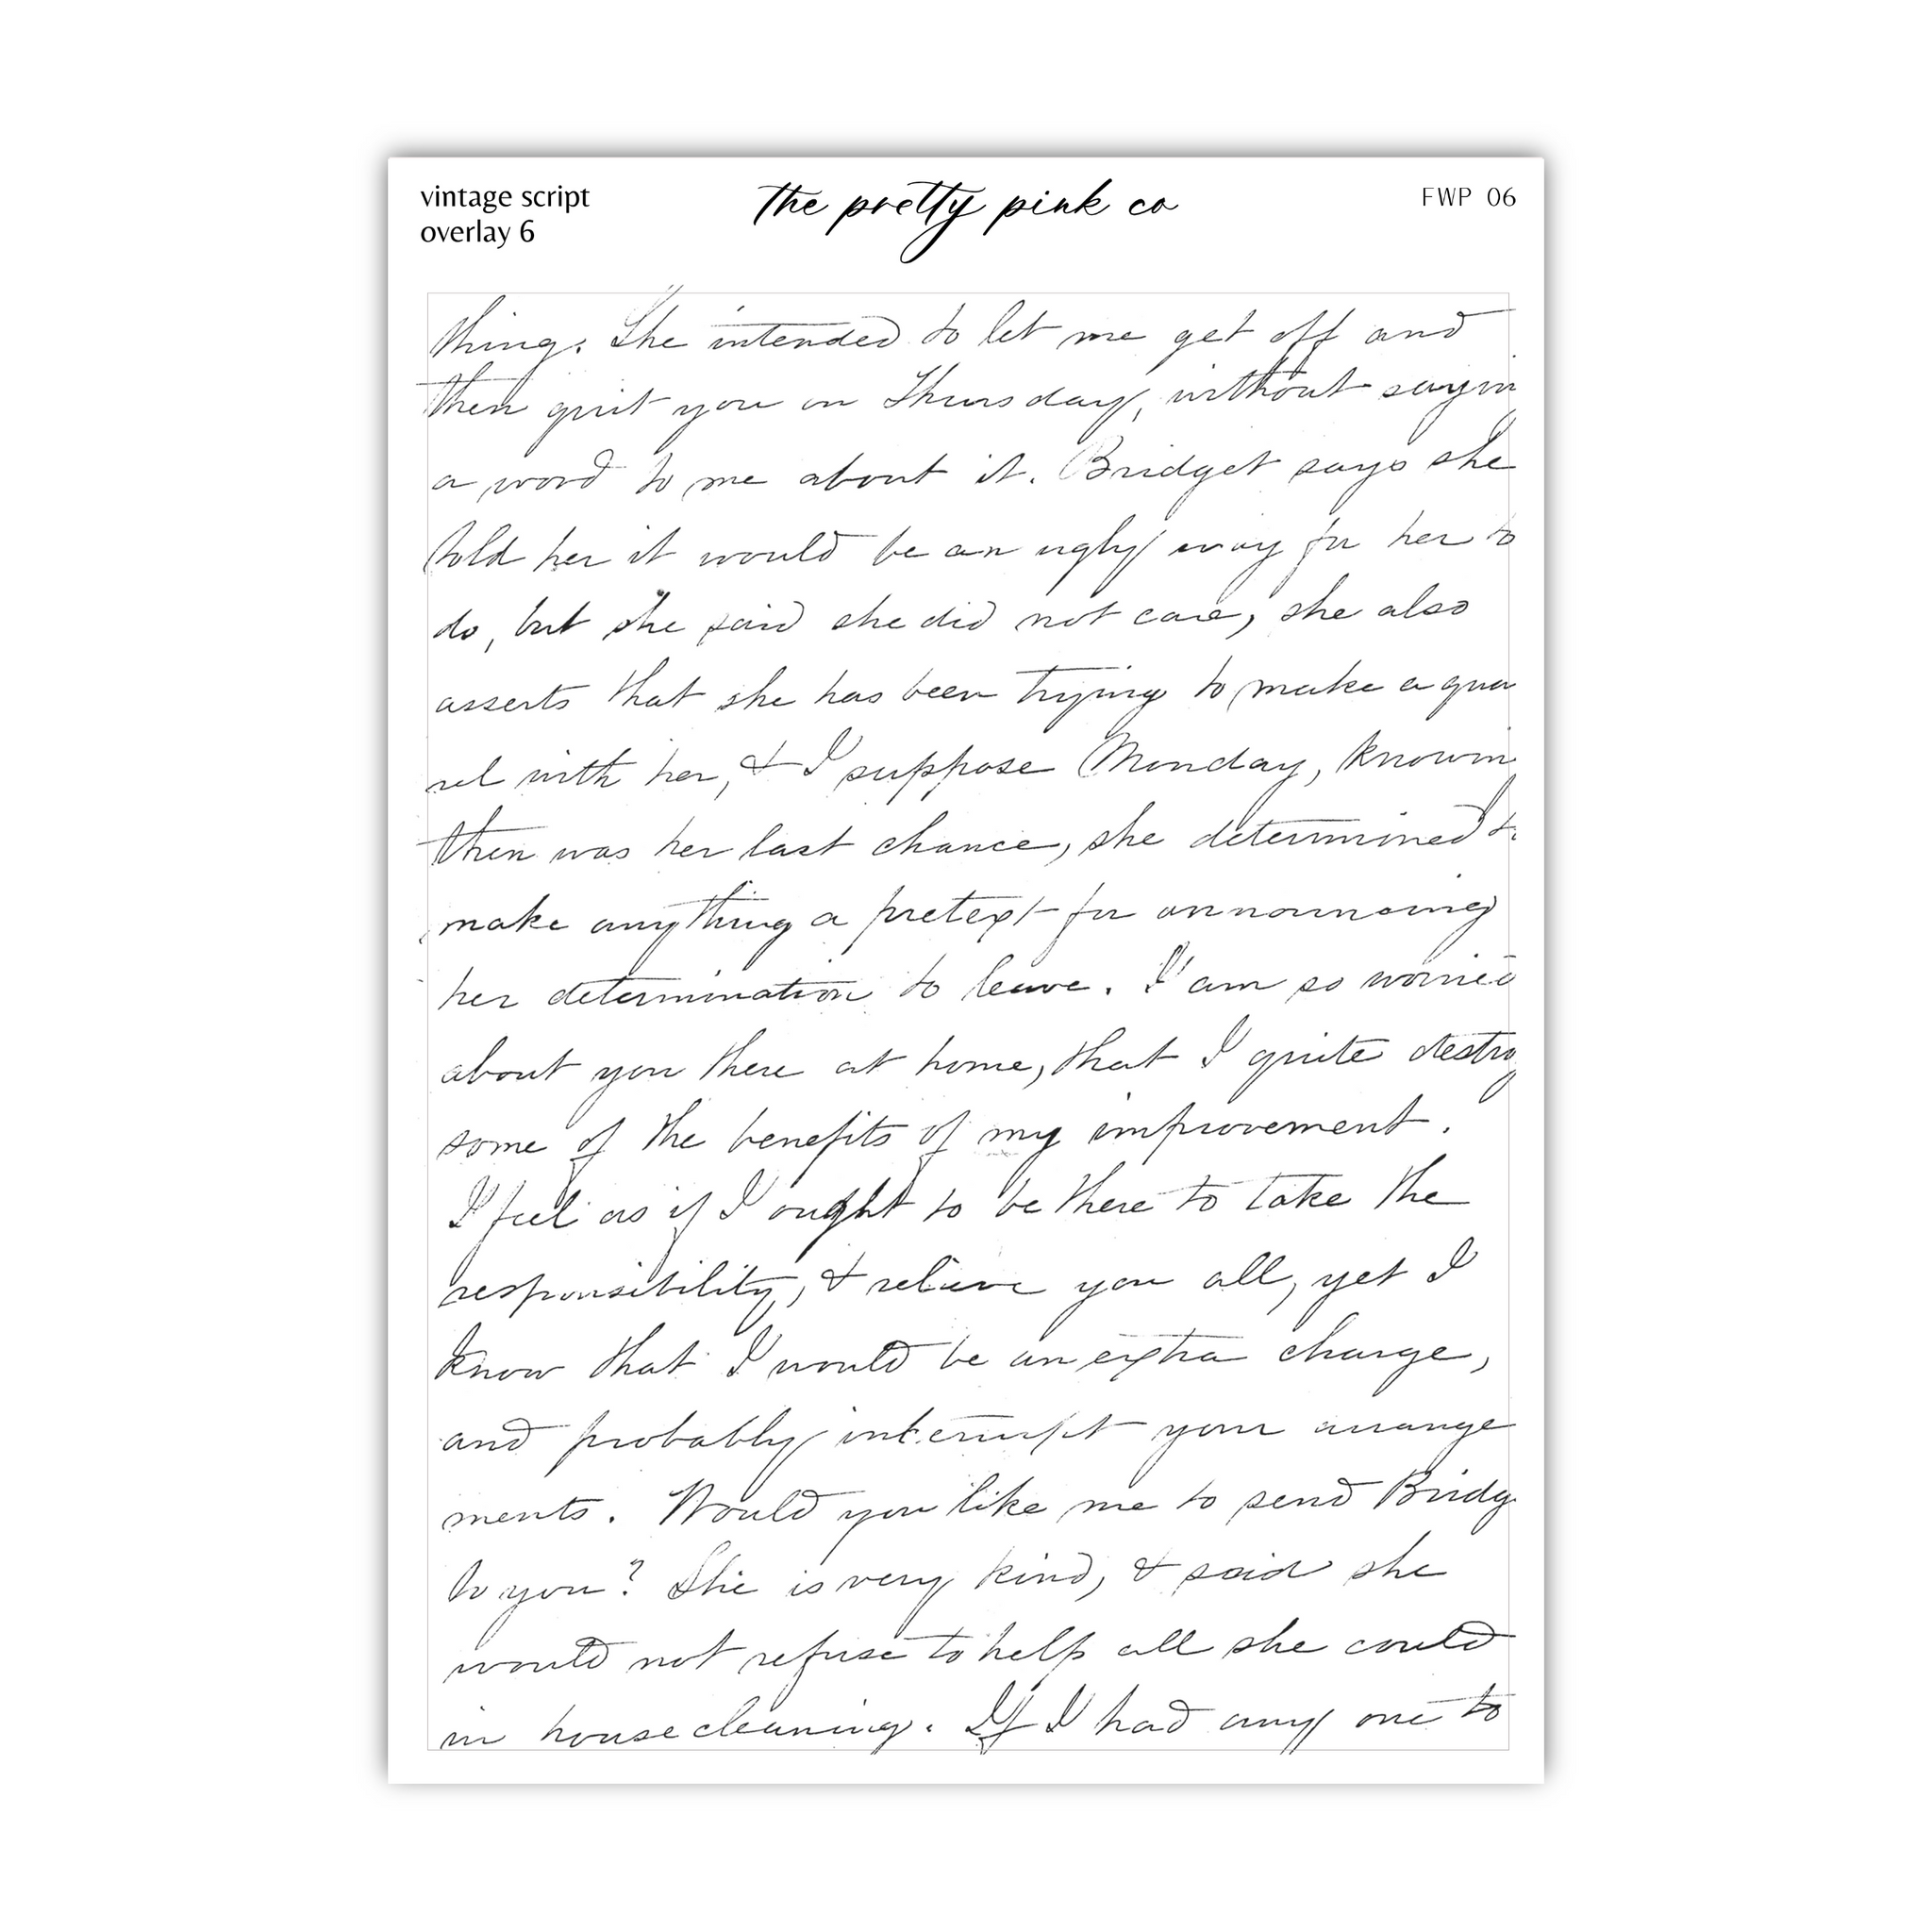 vintage script
overlay 6
the pretty pink co
FWP 06
thing. She intended to let me get off and
then quit you on Thursday, without sayin
a word to me about it. Bridget says she
told her it would be an ugly way for her to
do, but she said she did not care, she also
asserts that she has been trying to make a qua
rel with her, & I suppose Monday, knowin
then was her last chance, she determined to
make anything a pretext for announcing
her determination to leave. I am so worried
about you there at home, that I quite destroy
some of the benefits of my improvement.
I feel as if I ought to be there to take the
responsibility, & relieve you all, yet I
know that I would be an extra charge,
and probably interrupt your arrange
ments. Would you like me to send Bridg
to you? She is very kind, & said she
would not refuse to help all she could
in housecleaning. If I had any one to